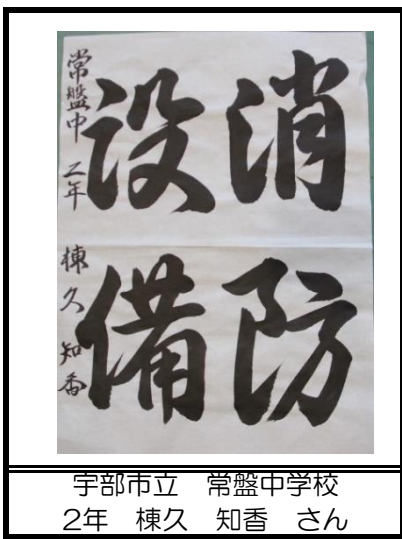 消防
設備
常盤中 二年 棟久知香
宇部市立 常盤中学校
2年 棟久 知香 さん